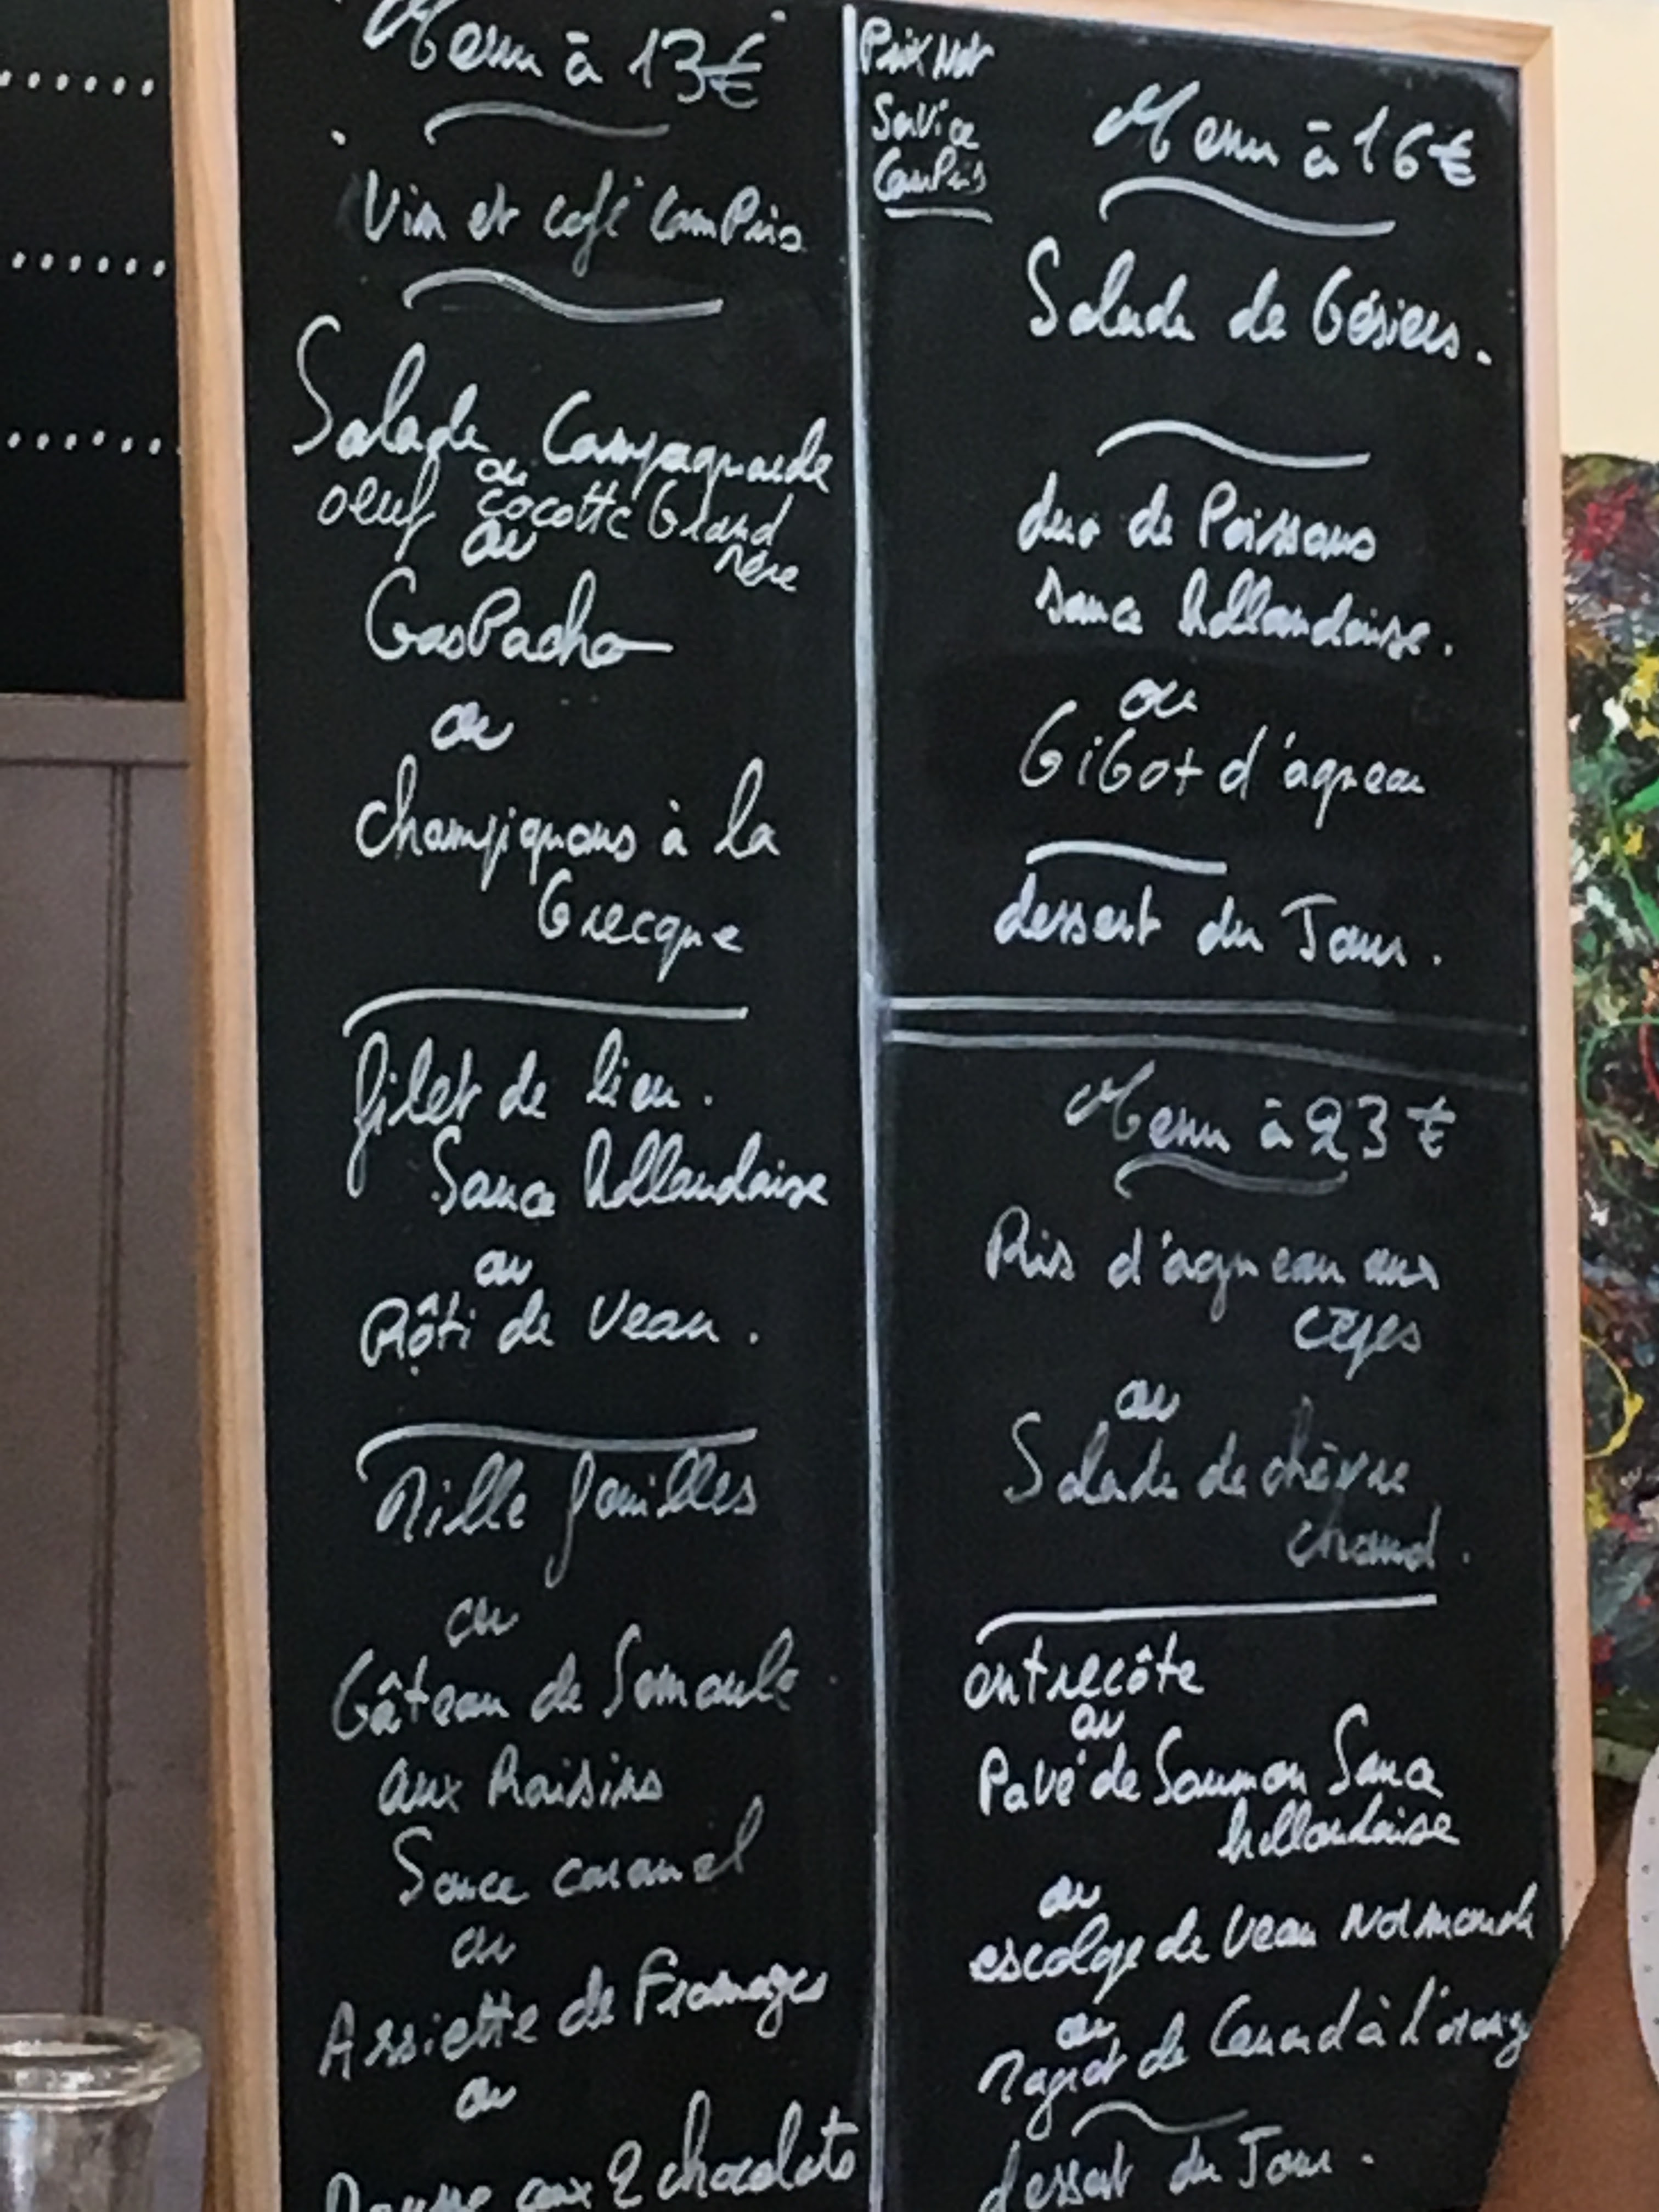 Menu à 13€
Vin et café comPris
Salade Campagnarde
ou
oeuf cocotte Grand
mère
ou
GasPacho
ou
champignons à la
Grecque
filet de lieu.
Sauce hollandaise
ou
Rôti de veau.
Mille feuilles
ou
Gâteau de Semoule
aux Raisins
Sauce caramel
ou
Assiette de Fromages
ou
Mousse aux 2 chocolats
Prix Net
Service
ComPris
Menu à 16€
Salade de Gésiers.
duo de Poissons
sauce hollandaise.
ou
GiGot d'agneau
dessert du Jour.
Menu à 23€
Ris d'agneau aux
cèpes
ou
Salade de chèvre
chaud.
entrecôte
ou
Pavé de Saumon Sauce
hollandaise
ou
escalope de veau Normande
ou
Magret de Canard à l'orange
dessert du Jour.